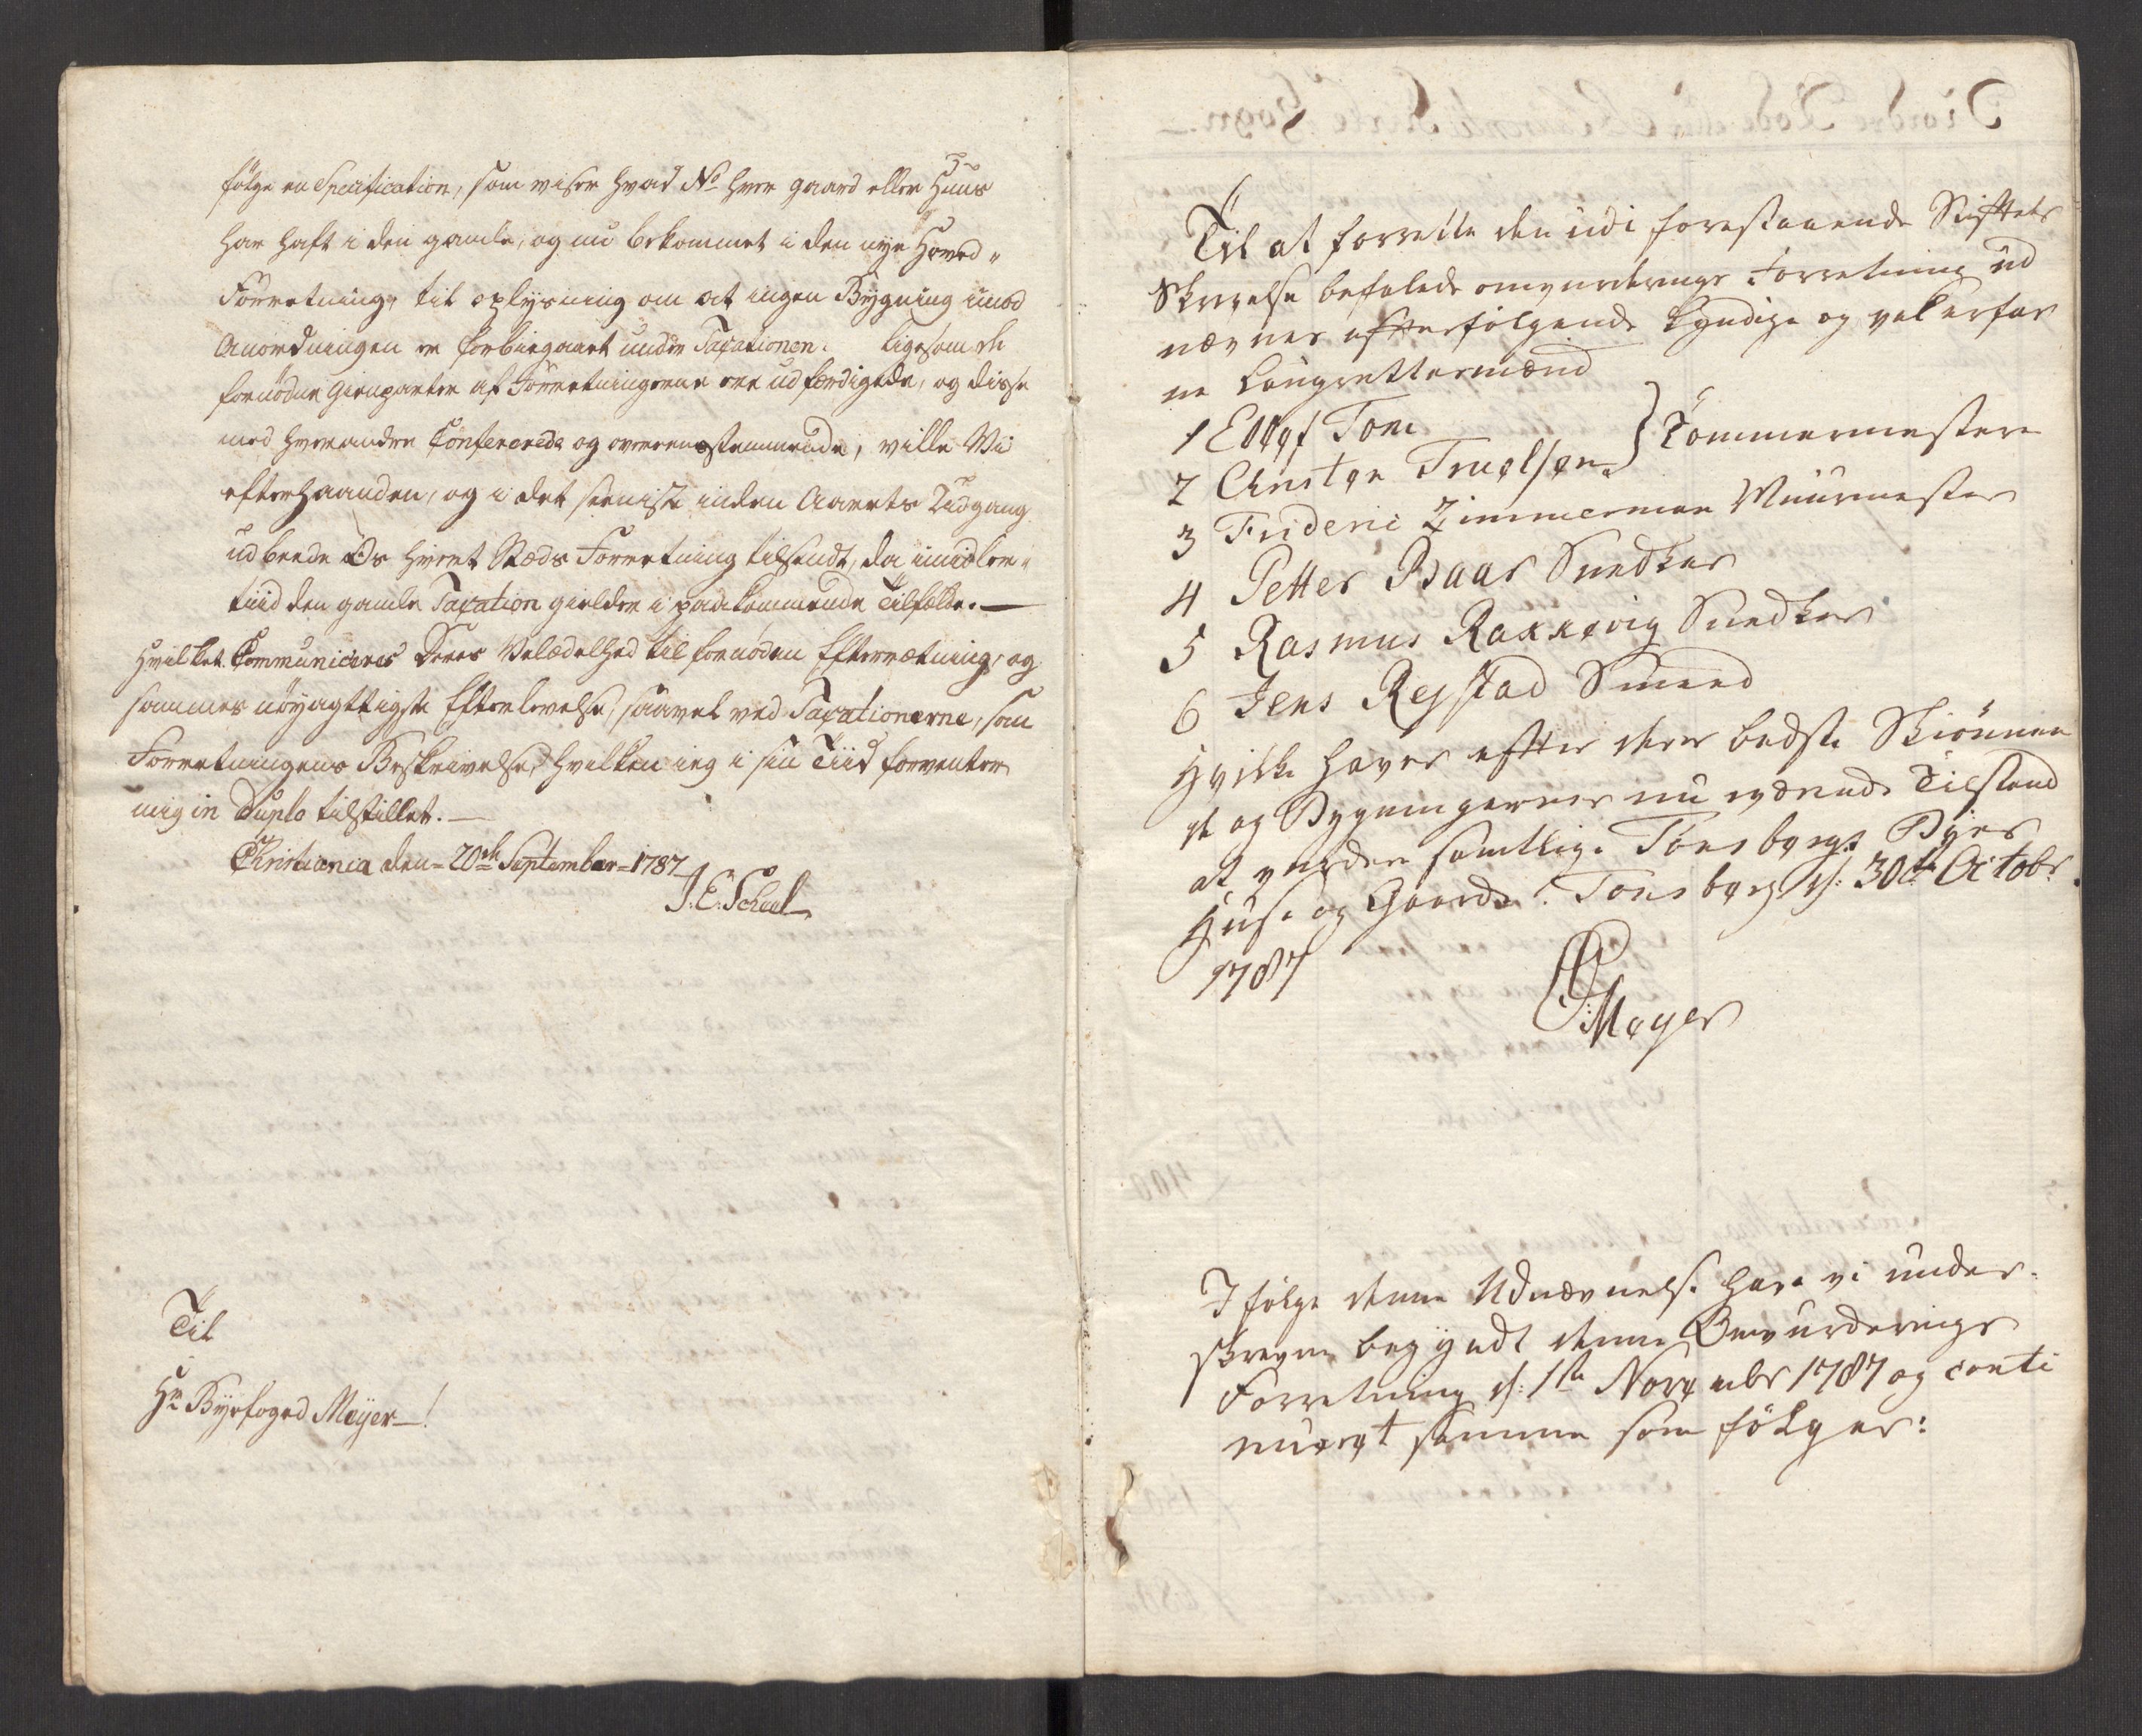 følge en Specification, som viser hvad No hver gaard eller Huus
har haft i den gamle, og nu bekommet i den nye Hoved-
Forretning, til oplysning om at ingen Bygning imod
Anordningen er forbiegaaet under Taxationen. Ligesom de
fornødne Gienparter af Forretningerne ere udfærdigede, og disse
med hverandre Confererede og overeensstemmende, ville Vi
efterhaanden, og i det seeniste inden Aarets Udgang
udbeede Os hvert Stæds Forretning tilsendt, da imidler-
tiid den gamle Taxation gielder i paakommende Tilfælde. —
Hvilket Communiceres Deres Velædelhed til fornøden Efterretning, og
sammes nøyagtigste Efterlevelse, saavel ved Taxationerne, som
Forretningens Beskrivelse, hvilken ieg i sin Tiid forventer
mig in Duplo tilstillet. —
Christiania den 20de September 1787
J. E. Scheel
Til
Hr Byefoged Meyer — !
Til at forrette den udi forestaaende Stiftets
Skrivelse befalede omvurderings Forretning ud
nævnes efterfølgende kyndige og vel erfar
ne Laugrettesmænd
1 Ellef Tom
2 Christen Truelsen } Tømmermestere
3 Frideric Zimmerman Muurmester
4 Petter Baar Snedker
5 Rasmus Rakkevig Snedker
6 Jens Rejstad Smed
Hvilke haver efter deres bedste Skiønnen
de og Bygningernes nu værende Tilstand
at vurdere samtlige Tønsbergs Byes
Huse og Gaarde. Tønsberg d: 30te Octobr
1787
Meyer
I følge denne Udnævnelse have vi under-
skrevne begyndt denne Omvurderings
Forretning d: 1te Novembr 1787 og conti
nueret samme som følger: